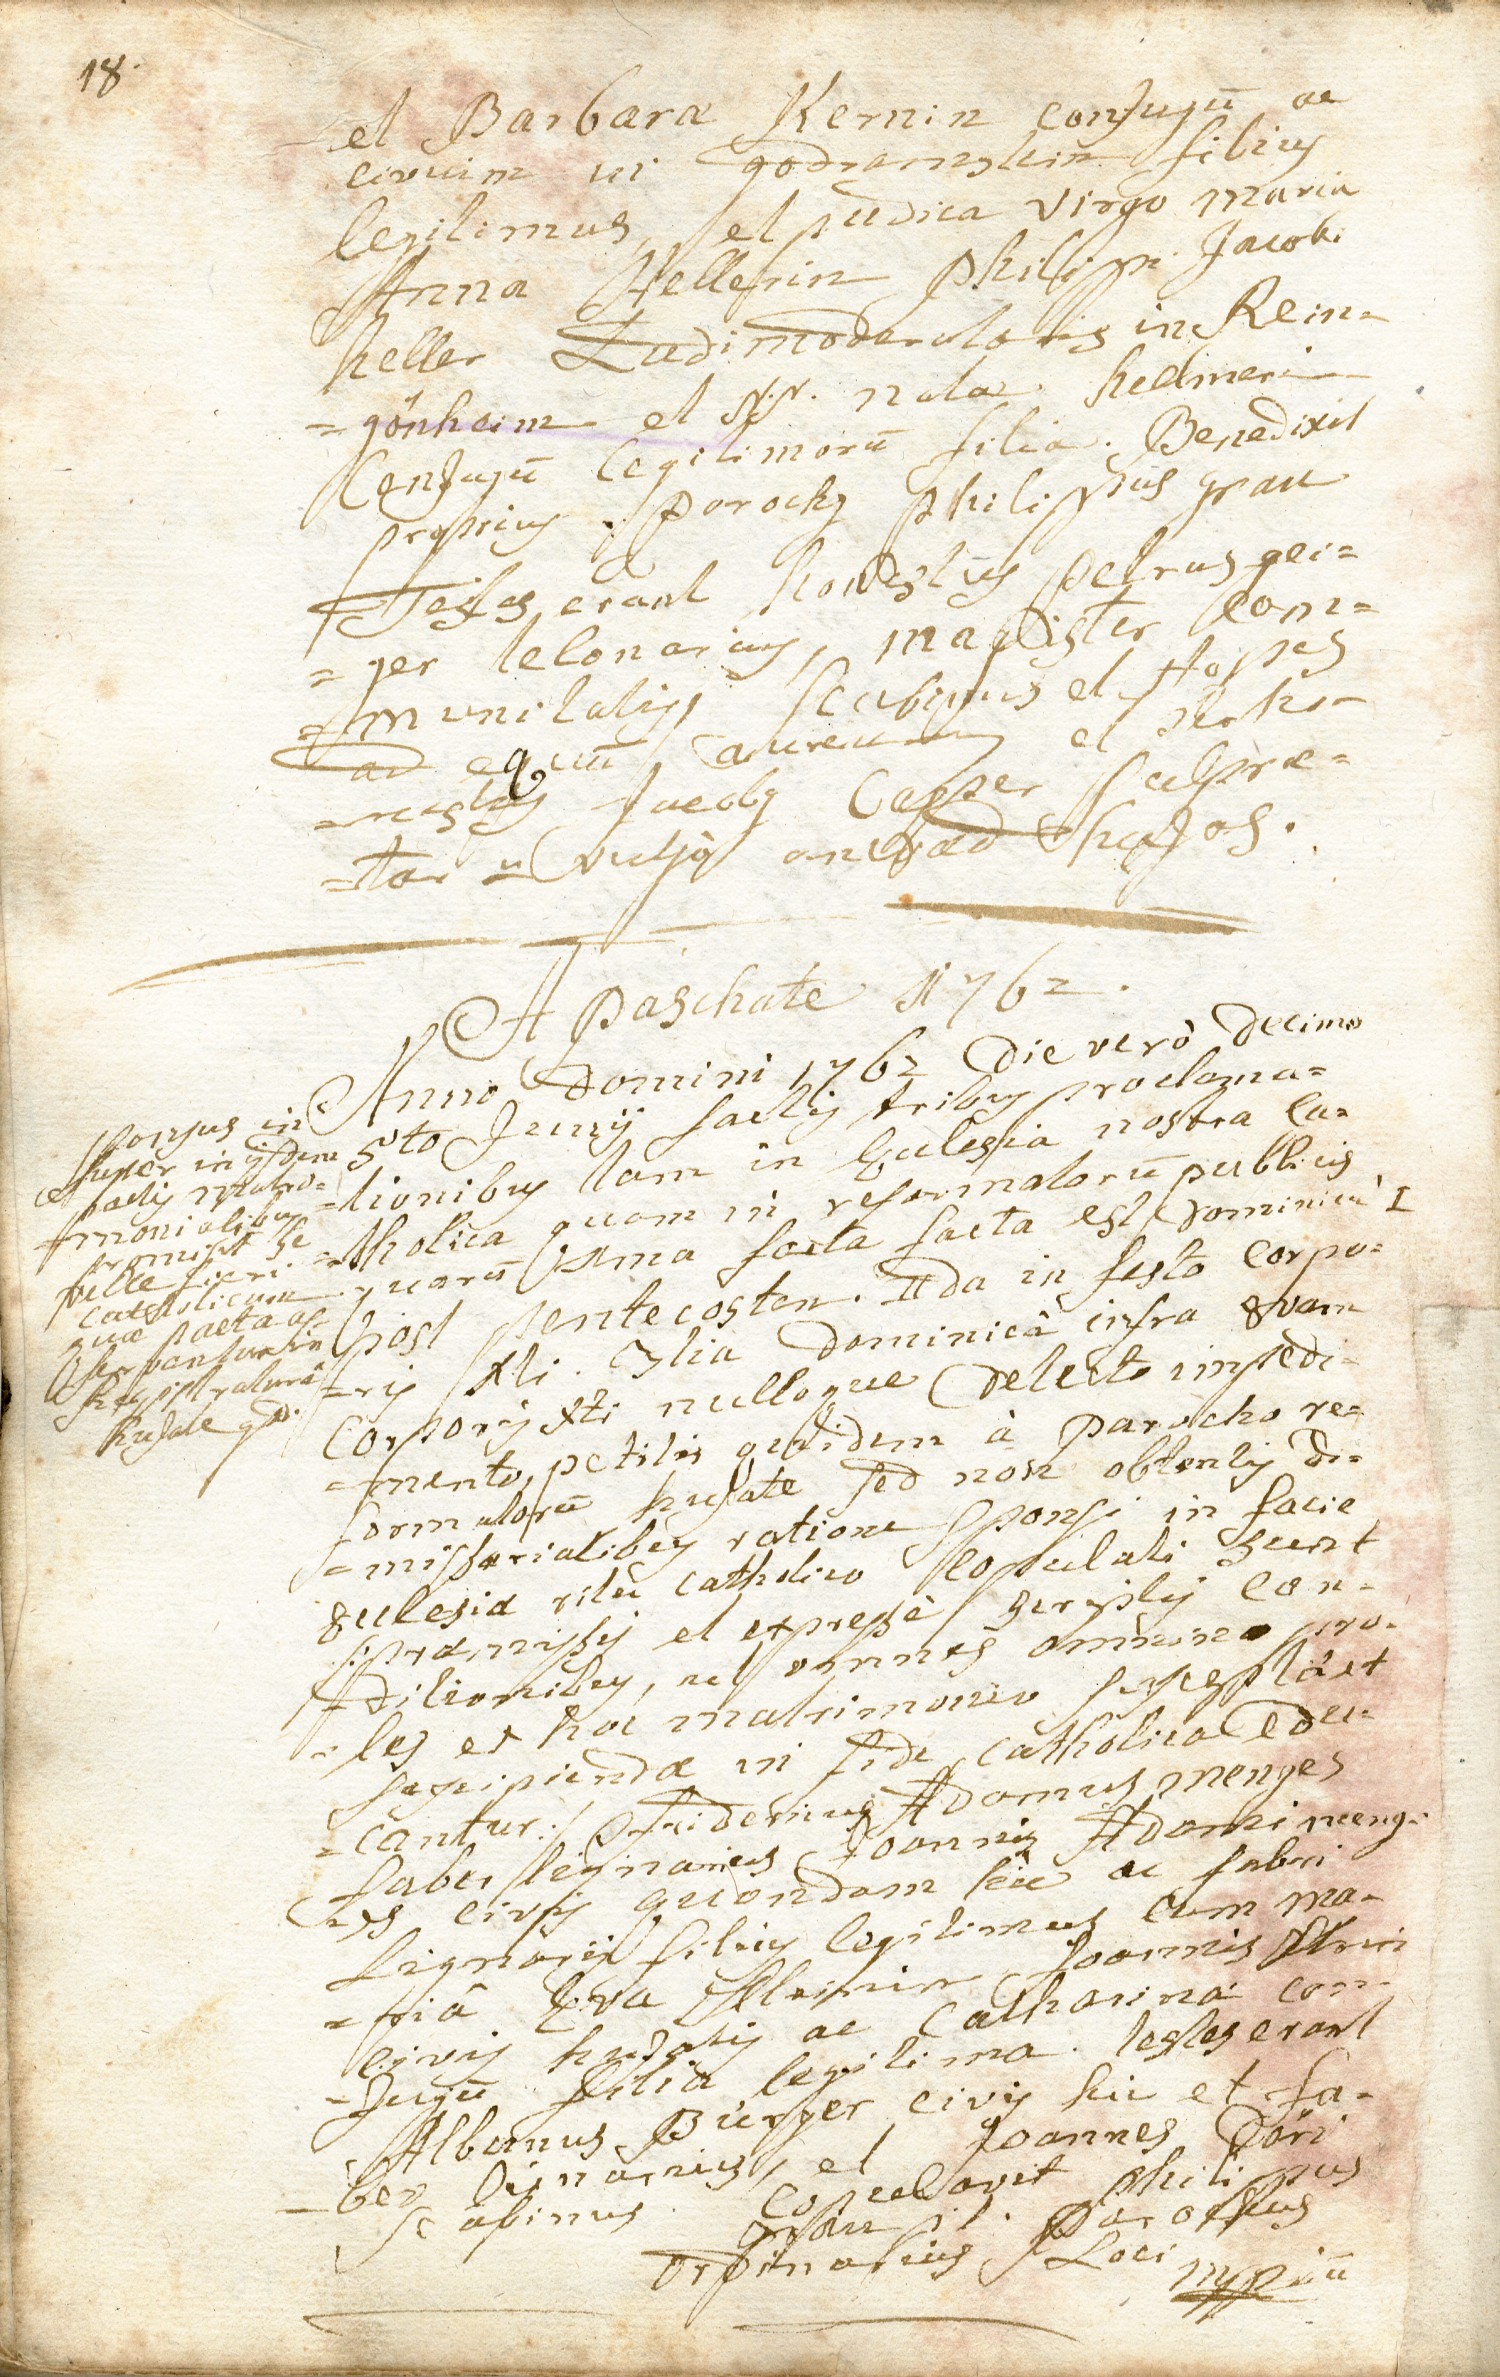 18.
et Barbara Kernin conjugū ac
civium in godramstein filius
legitimus, et pudica virgo maria
Anna Hellerin philippi Jacobi
heller Ludimoderatoris in Rein=
=gönheim et N.N. nata helmeri
Conjugū legitimorū filia. Benedixit
proprius parochus philippus grau
Testes erant honestus petrus gei=
=ger telonarius, magister com=
=munitatis, scabinus et Hospes
ad equū aureum et perho=
=nestus Jacobus Casper
=tor vulgò anwad hujas.
A paschate 1762.
Anno Domini 1762 die verò decimo
5to Junij factis tribus proclama=
=tionibus tam in Ecclesia nostra ca=
=tholica quam in reformatorū publicis
quarū 1ma facta facta est dominicâ I
post pentecosten. IIda in festo corpo=
=ris Xti. 3tia dominicâ infra 8vam
Corporis Xti nulloque detecto impedi=
=mento, petitis quidem à parocho re=
formatorū hujate sed non obtentis di=
=missorialibus ratione sponsi in facie
Ecclesiæ ritu catholico copulati sunt
præmissis et expressè scriptis con=
ditionibus, ut omnes omnino pro=
=les ex hoc matrimonio suscepta et
suscipiendæ in fide catholica edu=
=cantur: Fridericus Adamus menges
faber lignarius Joannis Adami meng=
es civis quondam hic ac fabri
Lignarij filius legitimus cum ma=
=riâ Eva Joannis
civis hujatis ac Catharina con=
=jugū filia legitima. testes erant
Albanus Bürger civis hic et fa=
=ber lignarius, et Joannes Döri
scabinus. Copulavit philippus
grau p.t. parochus
ordinarius Loci mppriū
sponsus in
super in ijsdem
pactis matri=
monialibus
promisit se
velle fieri
catholicum
quæ pacta as=
servantur in
registraturâ
hujate